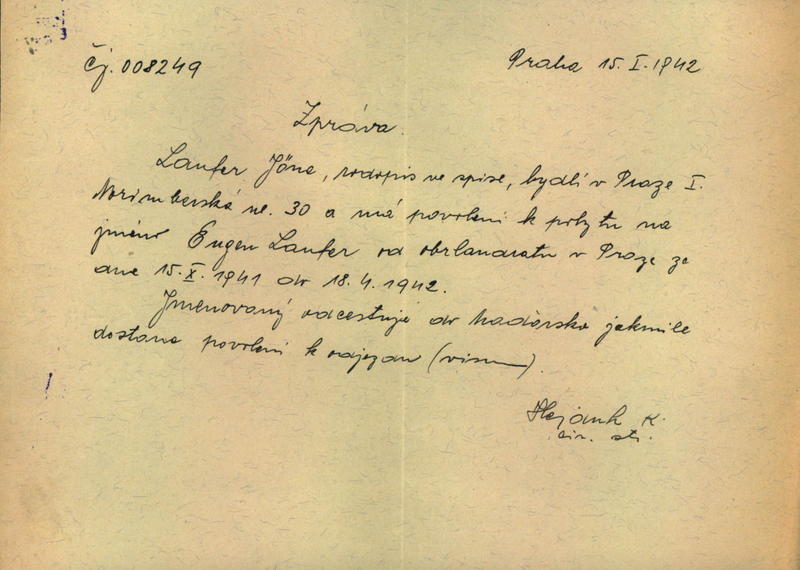 Čj. 008249
Praha 15. I. 1942
Zpráva.
Laufer Jöno, rodopis ve spise, bydlí v Praze I.
Norimberská ul. 30 a má povolení k pobytu na
jméno Eugen Laufer od obrlandratu v Praze ze
dne 15. X. 1941 do 18. 4. 1942.
Jmenovaný odcestuje do Maďarska jakmile
dostane povolení k odjezdu (visum).
K.